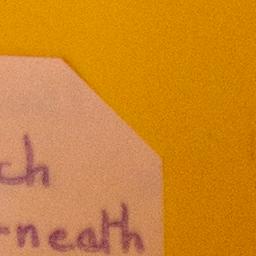 ch
rneath